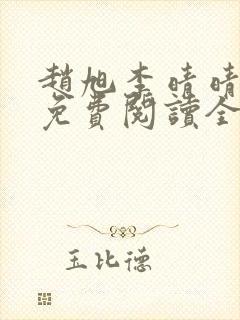 趙旭李晴晴
免費閱讀全
玉比德